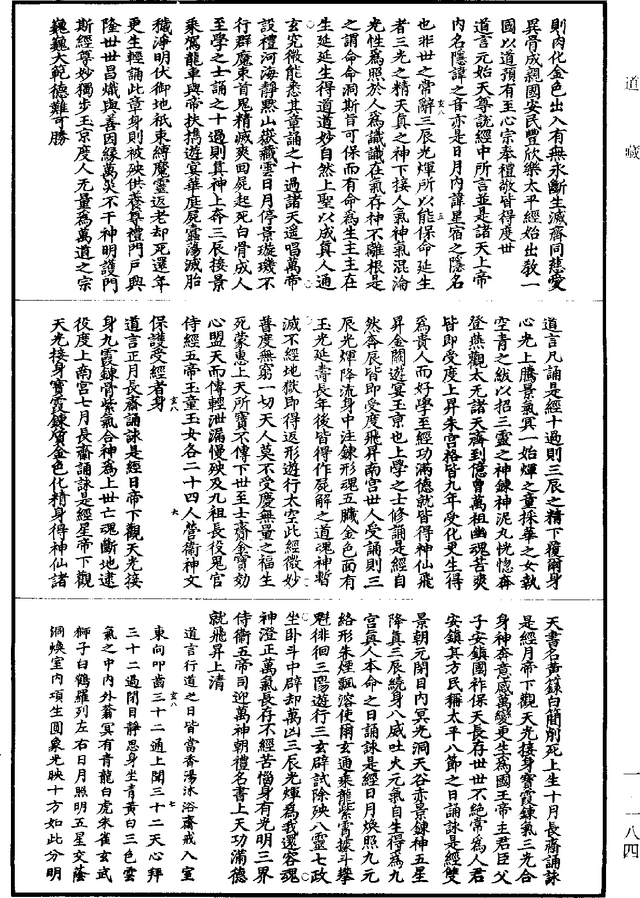 道藏
則肉化金色出入有無永斷生滅齊同慈愛
異骨成親國安民豐欣樂太平經始出教一
國以道預有至心宗奉禮敬皆得度世
道言元始天尊說經中所言並是諸天上帝
內名隱諱之音亦是日月內諱星宿之隱名
也非世之常辭三辰光煇所以能保命延生
者三光之精天真之神下接人氣神氣混淪
光性爲照於人爲識識在氣存神不離根是
之謂命命洞斯旨可保而有命爲生主主在
生延延生得道道妙自然上聖以成真人通
玄究微能悉其章誦之十過諸天遙唱萬帝
設禮河海靜默山嶽藏雲日月停景璇璣不
行群魔束首鬼精滅爽回屍起死白骨成人
至學之士誦之十過則真神上奔三辰接景
乘駕龍車與帝扶携遊宴華庭屍靈蕩滅胎
穢淨明伏御地祇束縛魔靈返老却死還年
更生輕誦此章身則被殃供養尊禮門戶興
隆世世昌熾與善因緣萬災不干神明護門
斯經尊妙獨步玉京度人无量爲萬道之宗
巍巍大範德難可勝
道言凡誦是經十過則三辰之精下覆爾身
心光上騰景氣冥一始煇之童採華之女執
空青之紱以招三靈之神鍊神泥丸恍惚奔
登燕觀太元諸天齊到億曾萬祖幽魂苦爽
皆即受度上昇朱宮格皆九年受化更生得
爲貴人而好學至經功滿德就皆得神仙飛
昇金闕遊宴玉京也上學之士修誦是經自
然奔辰皆即受度飛昇南宮世人受誦則三
辰光煇降流身中注鍊形魂五臟金色面有
玉光延壽長年後皆得作屍解之道魂神暫
滅不經地獄即得返形遊行太空此經微妙
普度無窮一切天人莫不受慶無量之福生
死蒙惠上天所寶不傳下世至士齎金寶効
心盟天而傳輕泄漏慢殃及九祖長役鬼官
侍經五帝玉童玉女各二十四人營衛神文
保護受經者身
道言正月長齋誦詠是經日帝下觀天光接
身九霞鍊骨紫氣合神爲上世亡魂斷地逮
役度上南宮七月長齋誦詠是經星帝下觀
天光接身寶霞鍊質金色化精身得神仙諸
天書名黃籙白簡削死上生十月長齋誦詠
是經月帝下觀天光接身寶霞鍊氣三光合
身神奔意感萬變更生爲國王帝主君臣父
子安鎮國祚保天長存世世不絕常爲人君
安鎮其方民稱太平八節之日誦詠是經雙
景朝元閉目內冥光洞天谷亦景鍊神五星
降真三辰繞身八威吐火元氣自生得爲九
宮真人本命之日誦詠是經日月煥照九元
絡形朱煙飄溶使爾玄通乘龍紫霄據斗攀
魁徘徊三陽遊行三玄辟試除殃八靈七政
坐卧斗中辟却萬凶三辰光煇爲我還容魂
神澄正萬氣長存不經苦惱身有光明三界
侍衛五帝司迎萬神朝禮名書上天功滿德
就飛昇上清
道言行道之日皆當香湯沐浴齋戒入室
東向叩齒三十二通上聞三十二天心拜
三十二過閉目靜思身坐青黃白三色雲
氣之中內外蓊冥有青龍白虎朱雀玄武
獅子白鶴羅列左右日月照明五星交蔭
洞煥室內項生圓象光映十方如此分明
一-一八四